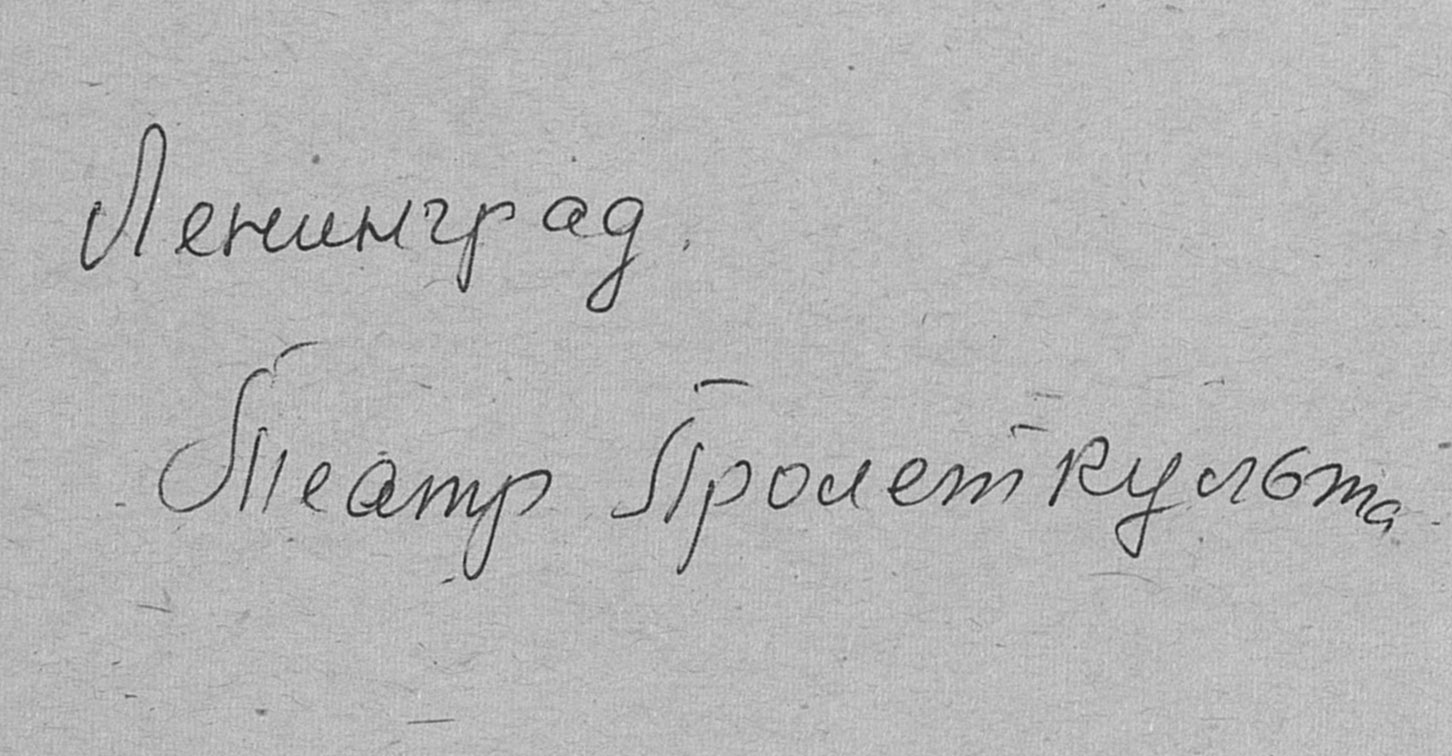 Ленинград.
Театр Пролеткульта